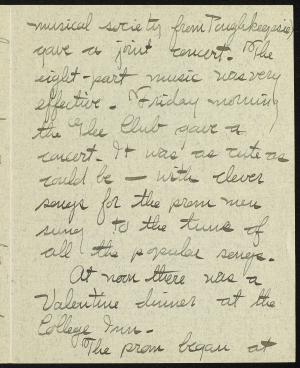 musical society from Poughkeepsie)
gave a joint concert. The
eight-part music was very
effective. Friday morning
the Glee Club gave a
concert. It was as cute as
could be – with clever
songs for the prom men
sung to the tune of
all the popular songs.
At noon there was a
Valentine dinner at the
College Inn.
The prom began at